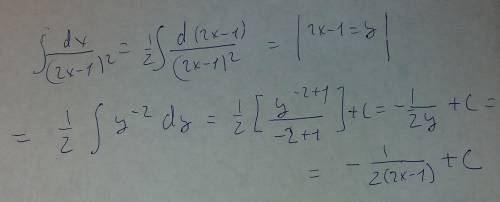 ∫ dx/(2x-1)² = 1/2 ∫ d(2x-1)/(2x-1)² = | 2x-1=y |
= 1/2 ∫ y⁻² dy = 1/2 [ y⁻²⁺¹/-2+1 ] + C = - 1/2y + C =
= - 1/2(2x-1) + C